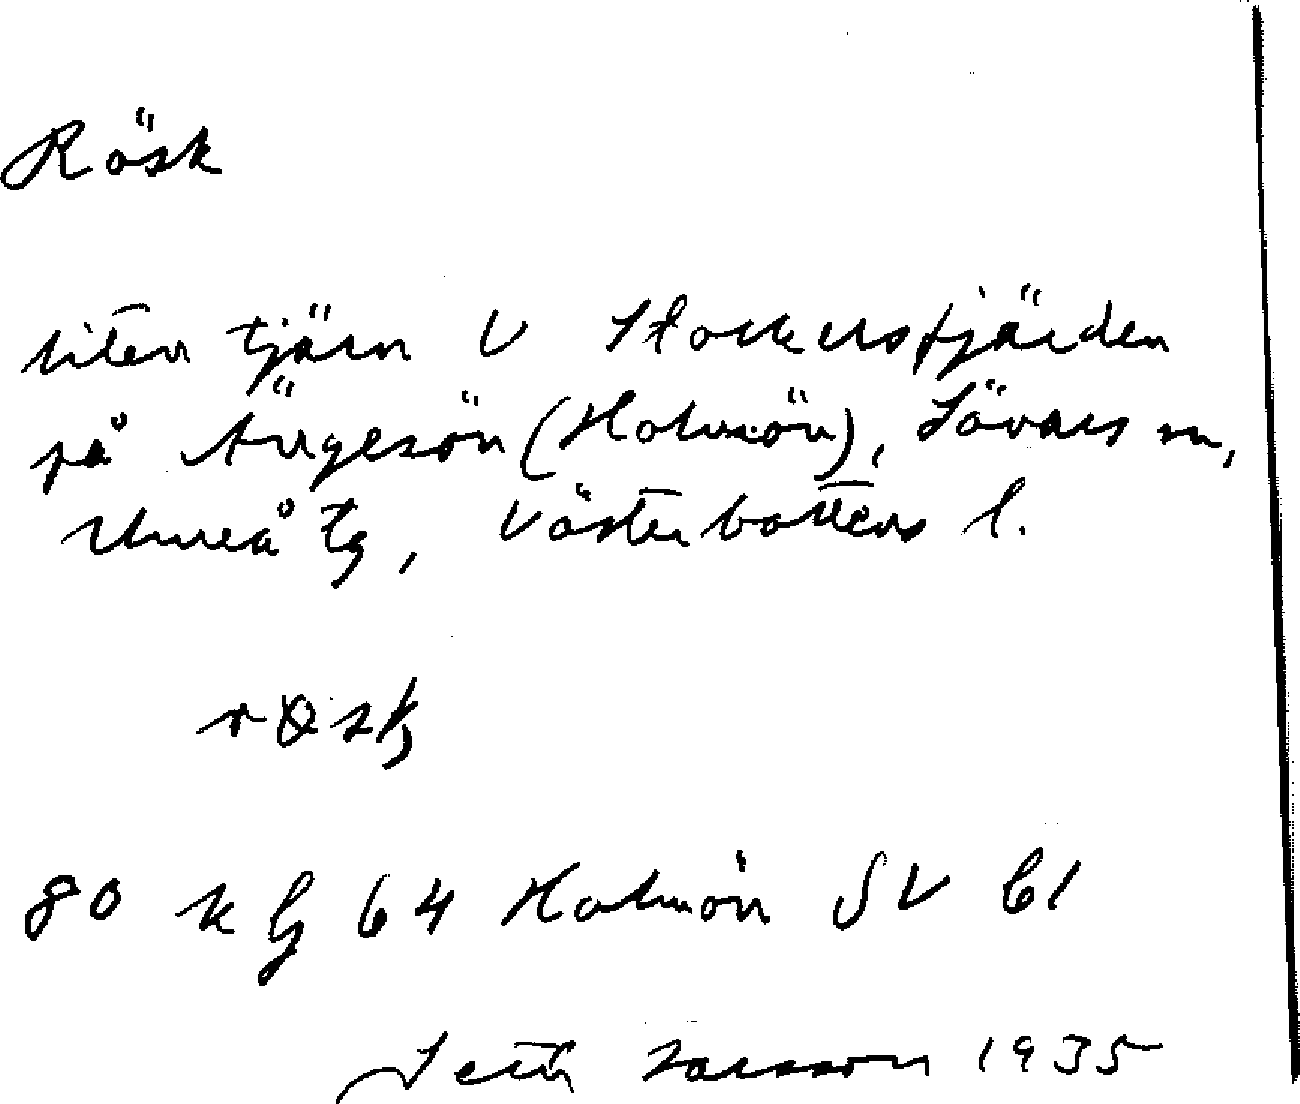 Rösk
liten tjärn V Stockusfjärden
på Ängesön (Holmön), Sävars sn,
Umeå tg, Västerbottens l.
röszk
80 k G 64 Holmön SV b1
Seth Larsson 1935